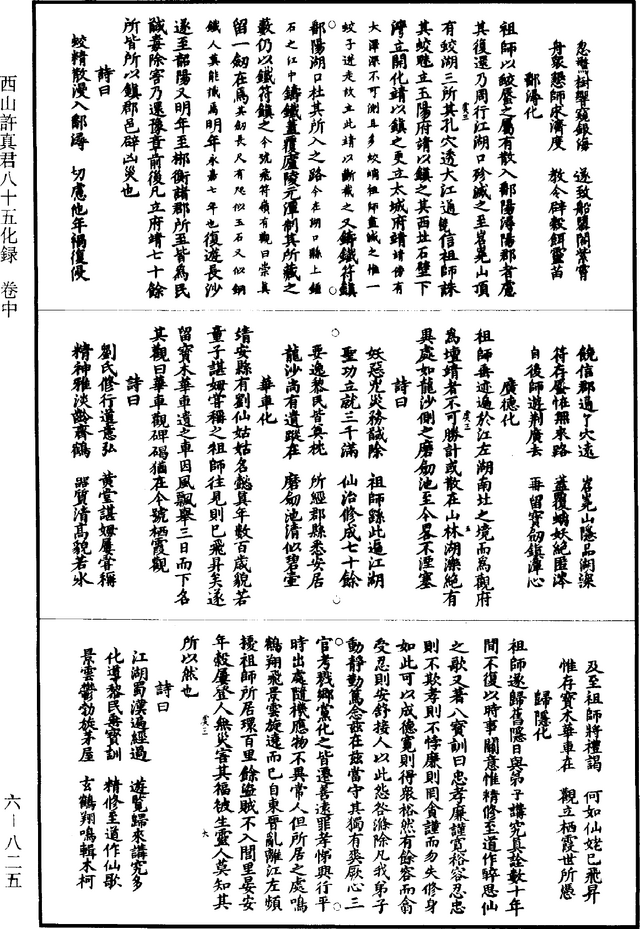 西山許真君八十五化録 卷中
六—八二五
忽聽樹聲窺銀海 遂致船翳閣紫霄
舟衆懇師求濟度 教令辟穀餌靈苗
鄱潯化
祖師以蛟蜃之屬有散入鄱陽潯陽郡者慮
其復還乃周行江湖口殄滅之至岧嶤山頂
有蛟湖三所其孔穴透大江通饒信祖師誅
其蛟魁立玉陽府靖以鎮之其西北石壁下
灣立開化靖以鎮之更立太城府靖靖傍有
大潭深不可測且多蛟螭祖師盡滅之惟一
蛟子迸走故立此靖以斷截之又鑄鐵符鎮
鄱陽湖口杜其所入之路今在湖口縣上鍾
石之江中鑄鐵蓋覆廬陵元潭制其所藏之
藪仍以鐵符鎮之今號飛符嶺有觀曰崇真
留一劒在焉其劒長尺有咫似玉石又似銅
鐵人莫能識焉明年永嘉七年也復遊長沙
遂至韶陽又明年至郴衡諸郡所至皆爲民
誠毒除害乃還豫章前後凡立府靖七十餘
所皆所以鎮郡邑辟凶災也
詩曰
蛟精散漫入鄱潯 切慮他年禍復侵
饒信郡通丫穴遠 岧嶤山隱品湖深
符存蜃怪無來路 蓋覆螭妖絕匿涔
自後師遊荆廣去 再留寶劒鎮潭心
廣德化
祖師再遊遍於江左湖南北之境而爲觀府
爲壇靖者不可勝計或散在山林湖濼絕有
異處如龍沙側之磨劒池至今畧不湮塞
詩曰
妖惡兇災務誠除 祖師緣此遍江湖
聖功立就三千滿 仙治修成七十餘
要逸黎民皆奠枕 所經郡縣悉安居
龍沙尚有遺蹤在 磨劒池清似碧壺
華車化
靖安縣有劉仙姑姑名懿真年數百歲貌若
童子諶姆嘗稱之祖師往見則已飛昇矣遂
留寶木華車遺之車因風飄舉三日而下名
其觀曰華車觀碑碣猶在今號栖霞觀
詩曰
劉氏修行道意弘 黃堂諶姆屢嘗稱
精神雅淡齡齊鶴 器質清高貌若氷
及至祖師將禮謁 何如仙姥已飛昇
惟存寶木華車在 觀立栖霞世所慿
歸隱化
祖師遂歸舊隱日與弟子講究真詮數十年
間不復以時事關意惟精修至道作醉思仙
之歌又著八寶訓曰忠孝廉謹寬裕容忍忠
則不欺孝則不悖廉則罔貪謹而勿失修身
如此可以成德寬則得衆裕然有餘容而翕
受忍則安舒接人以此怨咎滌除凡我弟子
動靜勤篤念兹在兹當守其獨有爽厥心三
官考戮鄉黨化之皆遷善遠罪孝悌興行平
時出處隨機應物不異常人但所居之處鳴
鶴翔飛景雲旋遶而已自東晉亂離江左頻
擾祖師所居環百里餘盜賊不入閭里晏安
年穀屢登人無災害其福被生靈人莫知其
所以然也
詩曰
江湖蜀漢遍經過 遊覧歸來講究多
化導黎民垂寶訓 精修至道作仙歌
景雲鬱勃旋茅屋 玄鶴翔鳴輯木柯